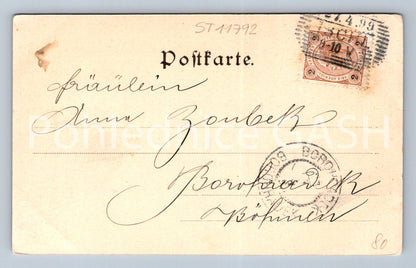 ST 11792
7.4.99
Postkarte.
Fräulein
Anna Zoubek
Borohradek
Böhmen
Pohlednice SASH
2 2
80